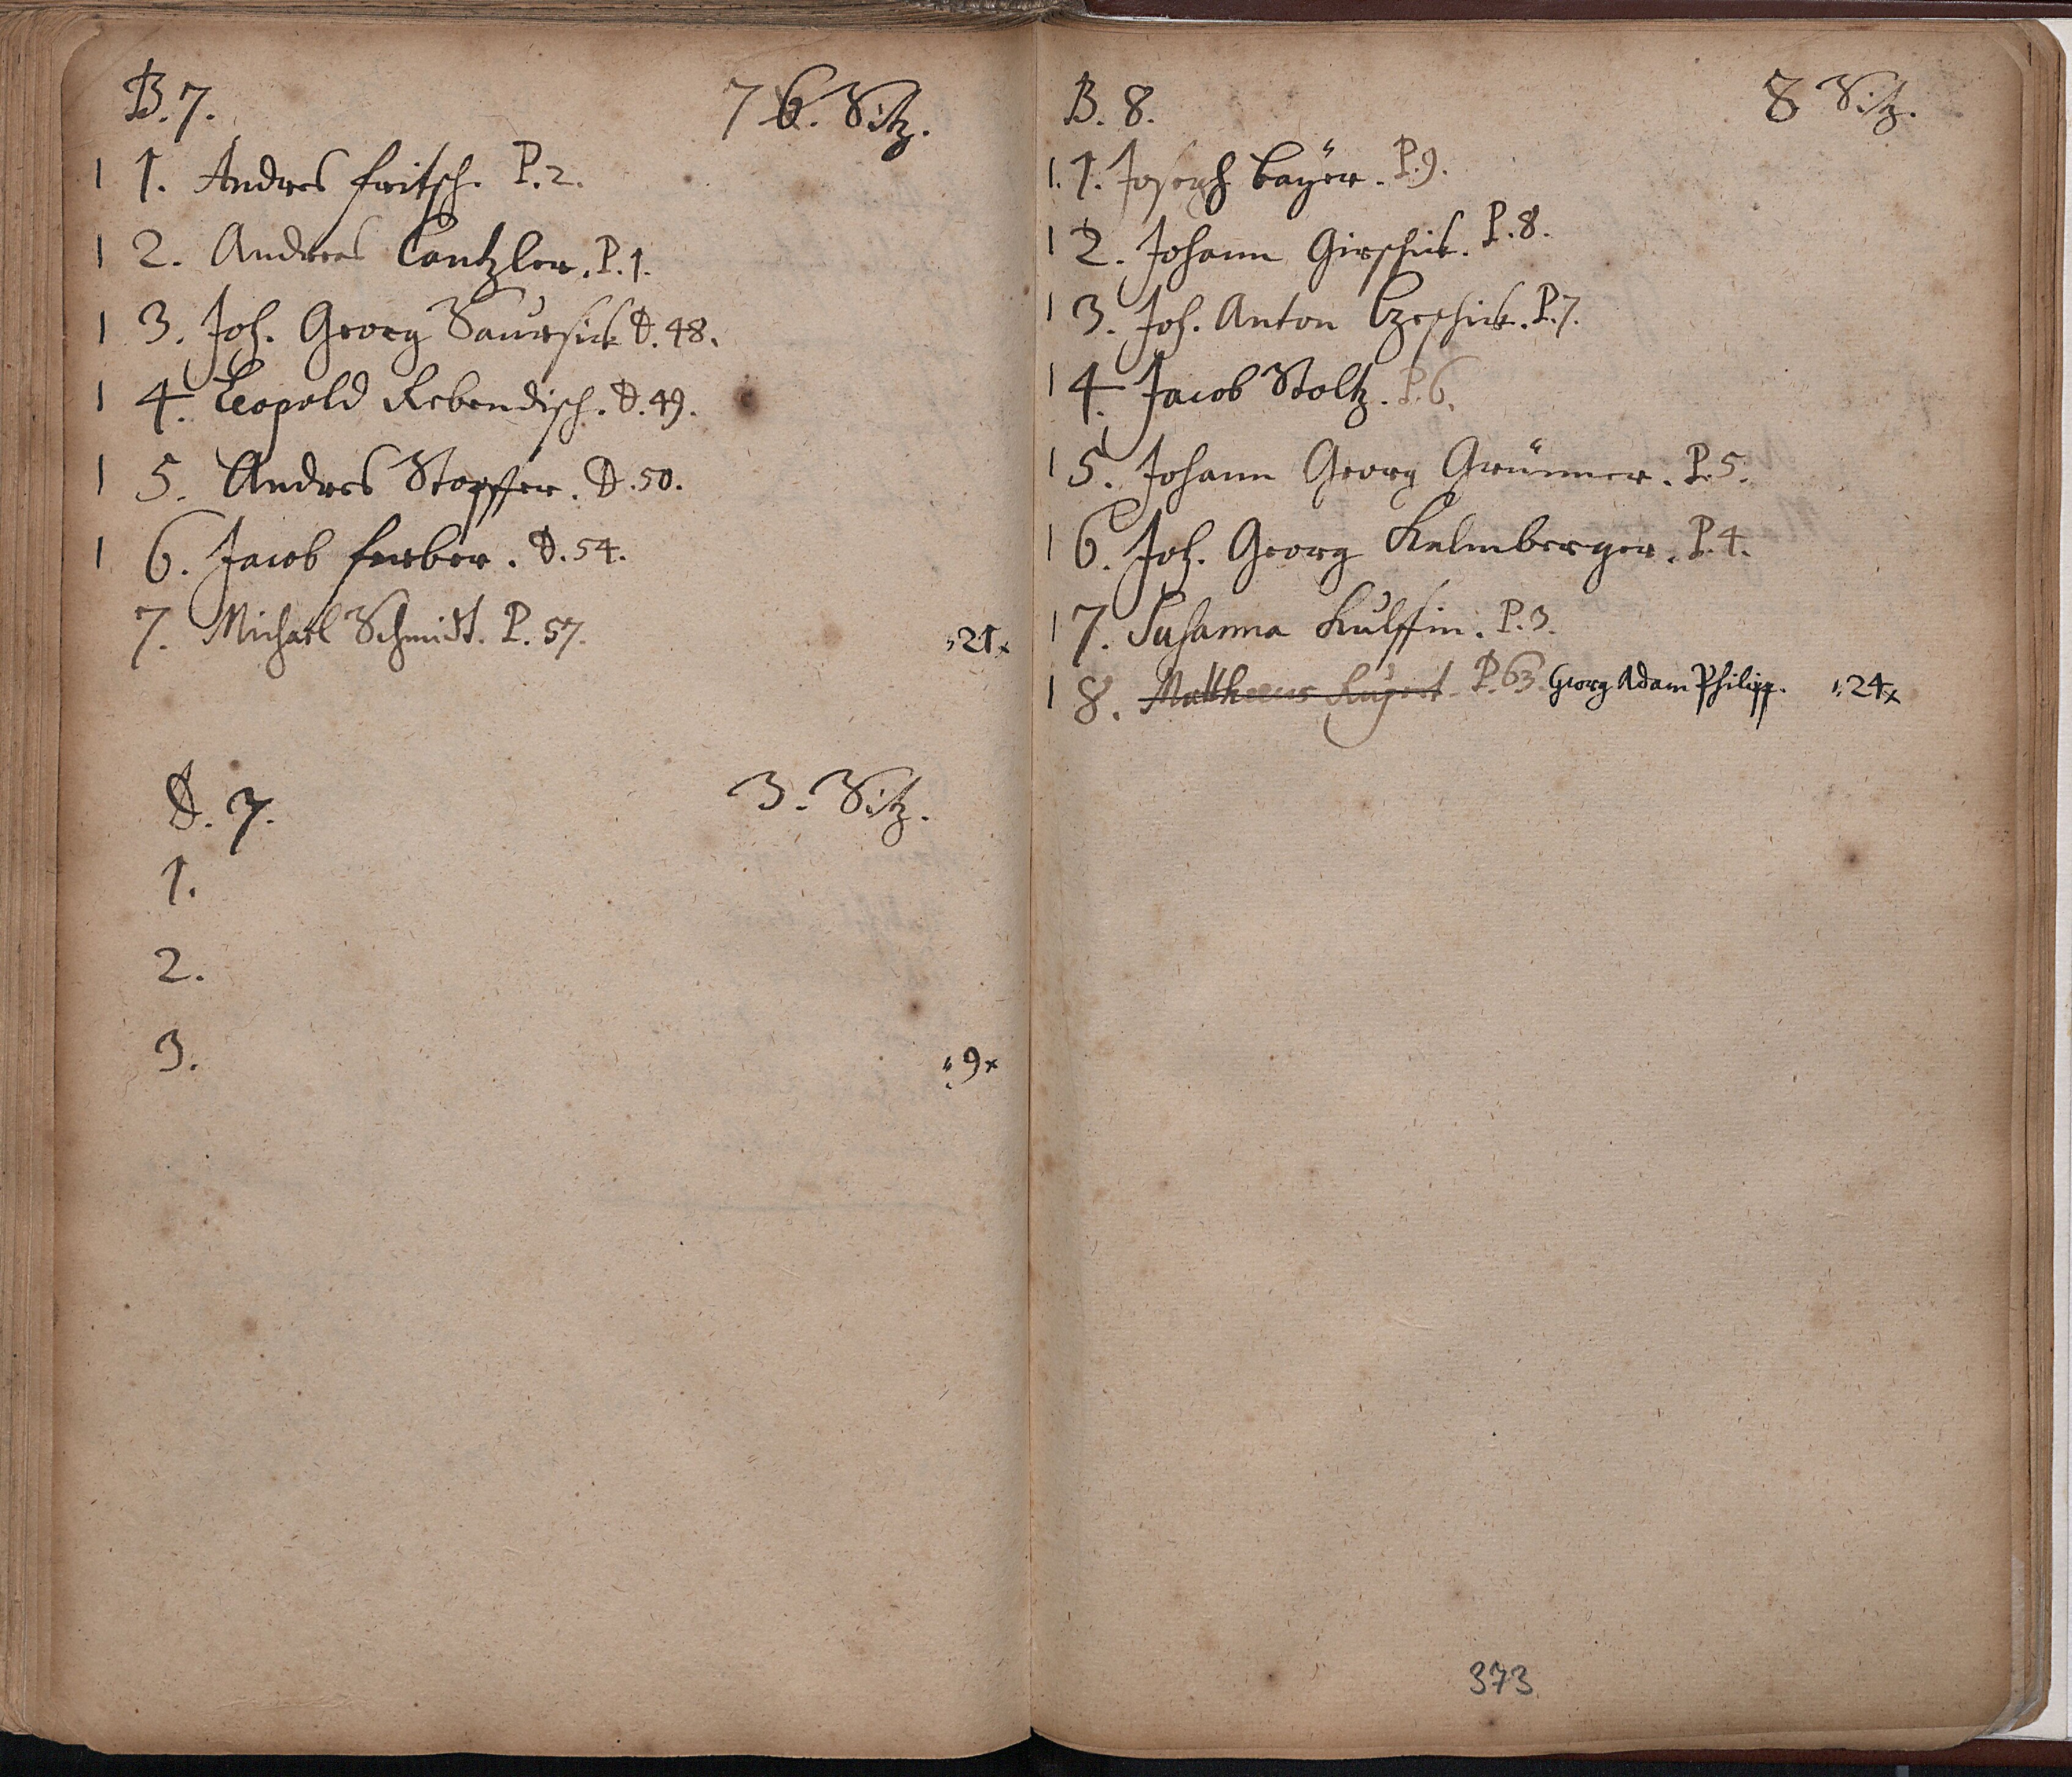 B. 7. 7 6. Sitz.
1 1. Andres fritsch. P. 2.
1 2. Andreas Cantzler. P. 1.
1 3. Joh. Georg Saursick D. 48.
1 4. Leopold Rebendisch. D. 49.
1 5. Andres Stopffer. D. 50.
1 6. Jacob ferber. D. 54.
7. Michael Schmidt. P. 57. 21x
D. 7. 3. Sitz.
1.
2.
3. 9x
B. 8. 8 Sitz.
1. 1. Joseph Bayer. P. 9.
1 2. Johann Girschick. P. 8.
1 3. Joh. Anton Czeschick. P. 7.
1 4. Jacob Stoltz. P. 6.
1 5. Johann Georg Grünner. P. 5.
1 6. Joh. Georg Kalmberger. P. 4.
1 7. Susanna Kulffin. P. 3.
1 8. Mattheus Rupert P. 63 Georg Adam Philipp. 24x
373